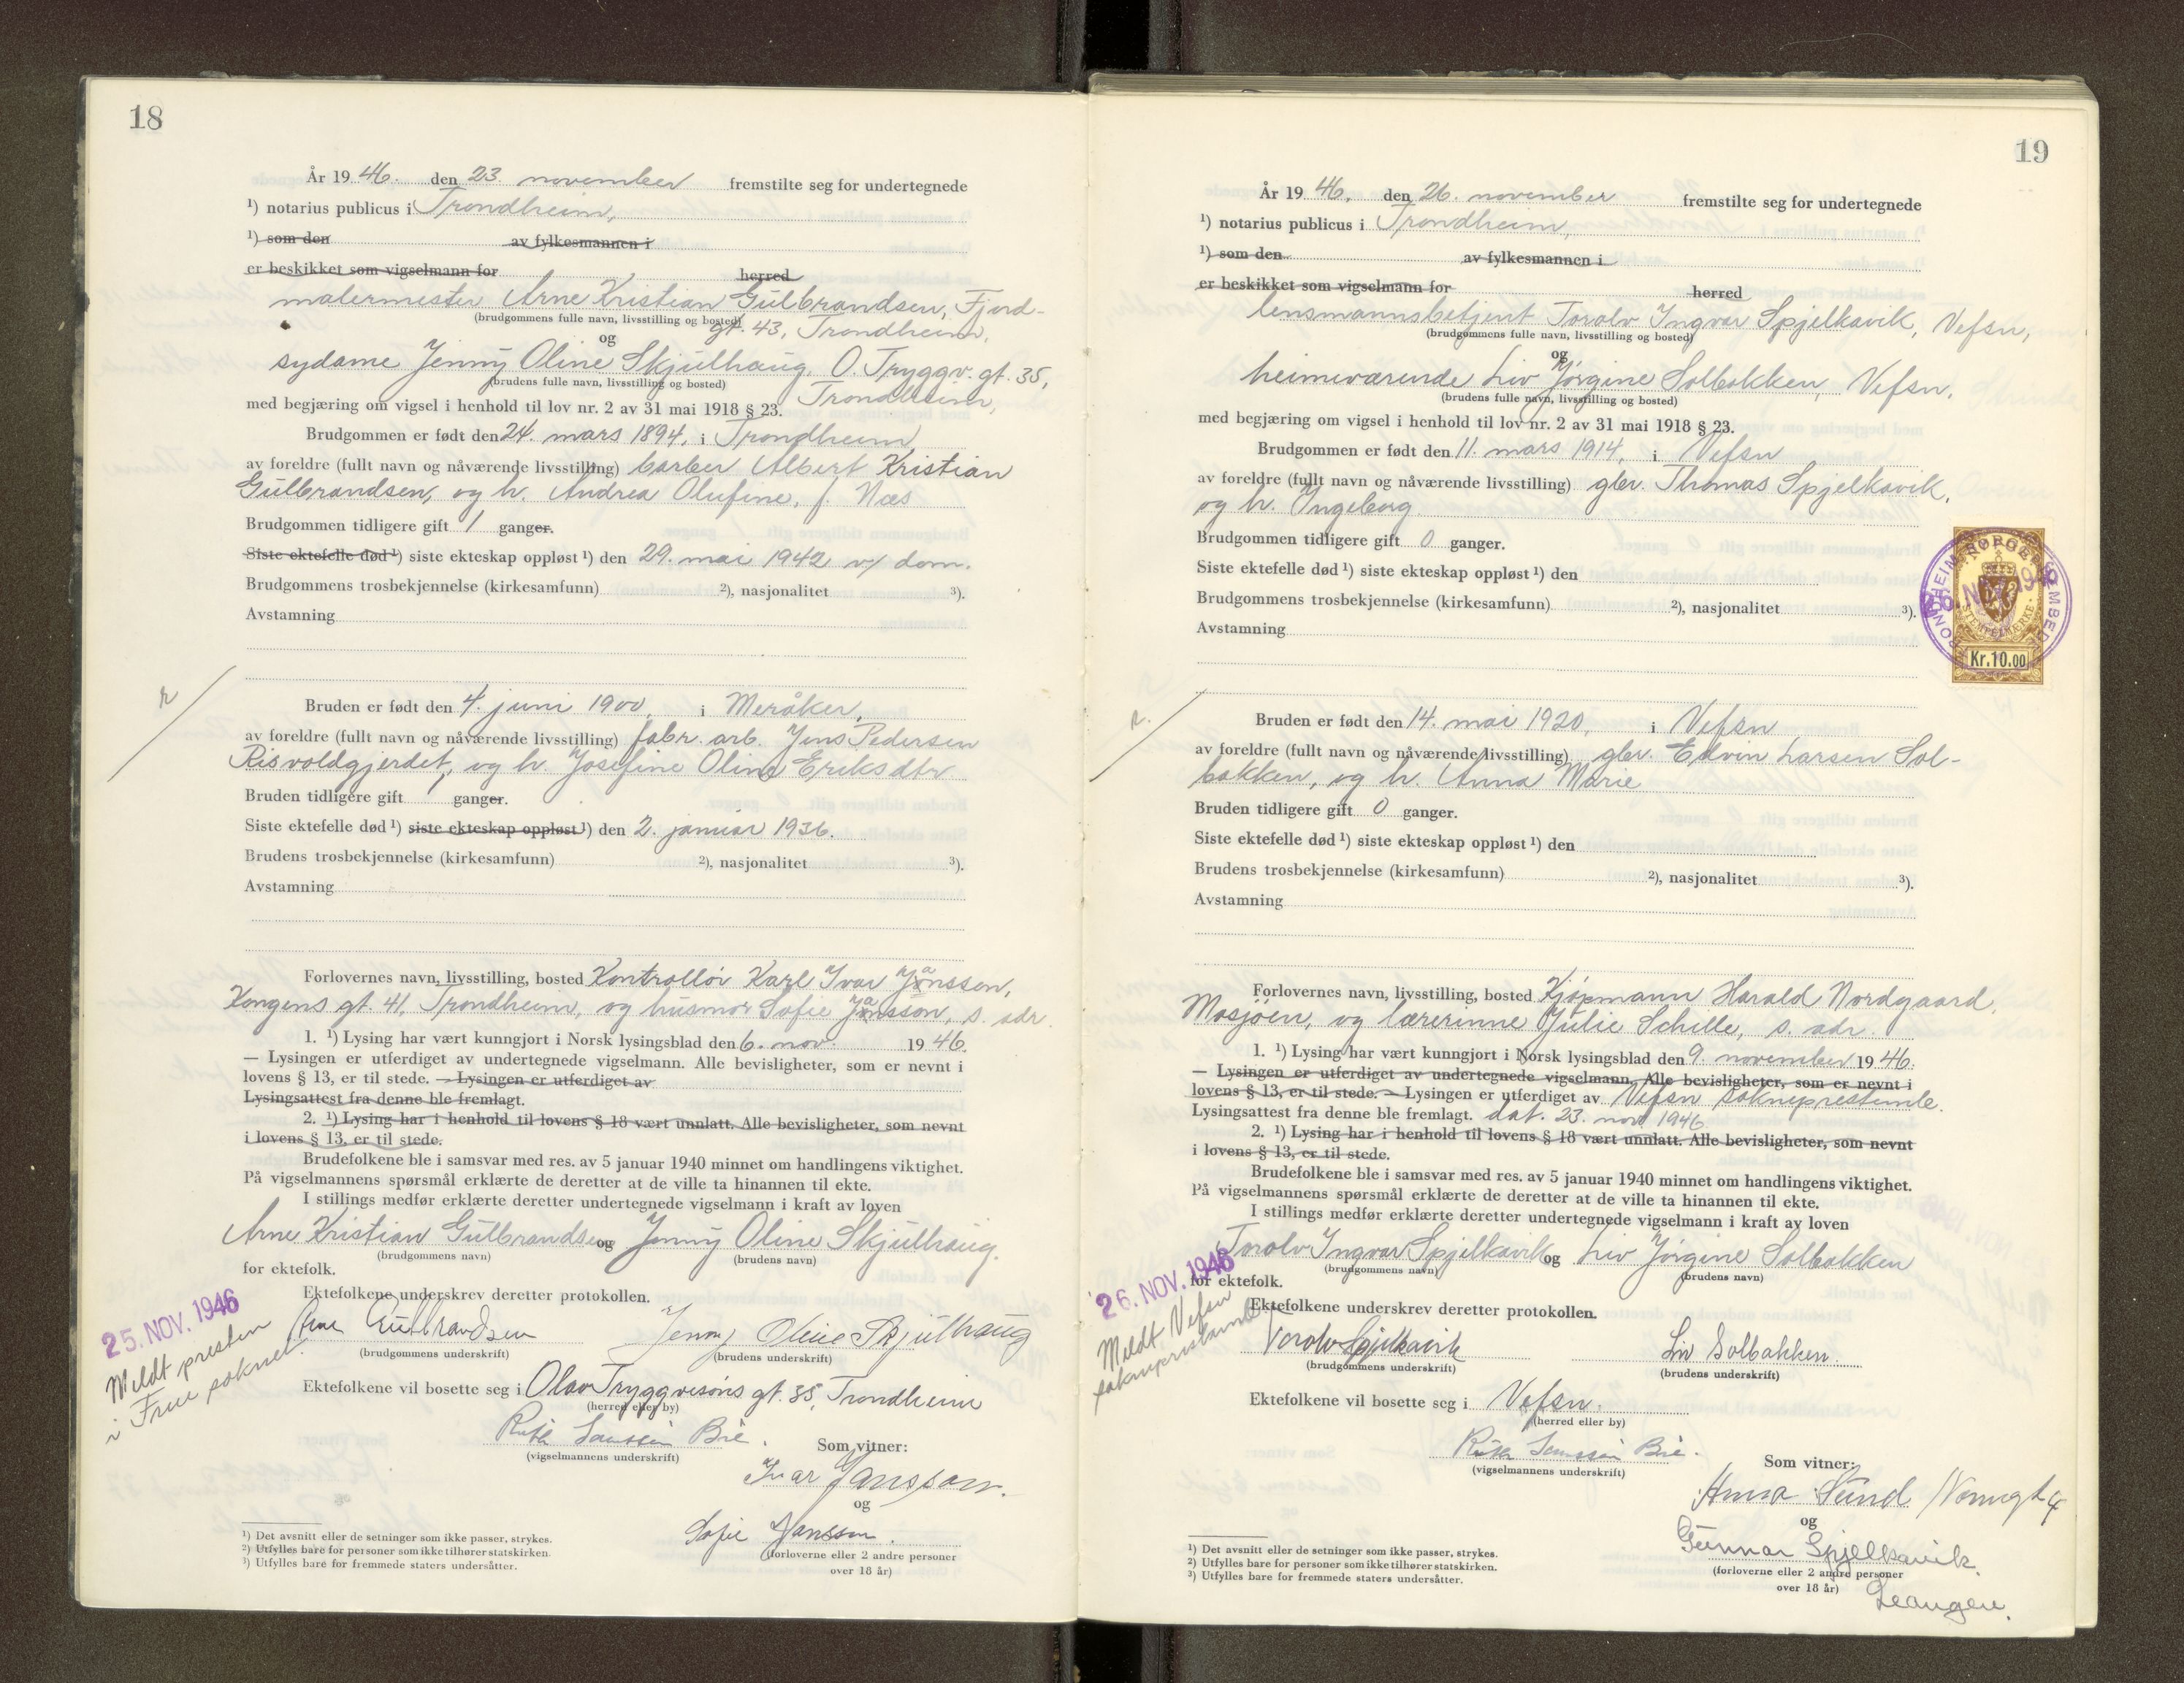 18
År 1946. den 23. november fremstilte seg for undertegnede
¹) notarius publicus i Trondheim,
¹) som den av fylkesmannen i
er beskikket som vigselmann for herred
malermester Arne Kristian Gulbrandsen, Fjord-
(brudgommens fulle navn, livsstilling og bosted)
gt. 43, Trondheim,
og
sydame Jenny Oline Skjulhaug, O. Tryggv. gt. 35,
(brudens fulle navn, livsstilling og bosted)
Trondheim,
med begjæring om vigsel i henhold til lov nr. 2 av 31 mai 1918 § 23.
Brudgommen er født den 24. mars 1894, i Trondheim
av foreldre (fullt navn og nåværende livsstilling) barber Albert Kristian
Gulbrandsen, og h. Andrea Olufine, f. Næs
Brudgommen tidligere gift 1 ganger.
Siste ektefelle død ¹) siste ekteskap oppløst ¹) den 29. mai 1942 v/ dom.
Brudgommens trosbekjennelse (kirkesamfunn) ²), nasjonalitet ³).
Avstamning
Bruden er født den 4. juni 1900, i Meråker,
av foreldre (fullt navn og nåværende livsstilling) fabr. arb. Jens Pedersen
Risvoldgjerdet, og h. Josefine Oline Eriksdtr
Bruden tidligere gift 1 ganger.
Siste ektefelle død ¹) siste ekteskap oppløst ¹) den 2. januar 1936.
Brudens trosbekjennelse (kirkesamfunn) ²), nasjonalitet ³).
Avstamning
Forlovernes navn, livsstilling, bosted Kontrollør Karl Ivar Janssen,
Kongens gt. 41, Trondheim, og husmor Sofie Jansson, s. adr.
1. ¹) Lysing har vært kunngjort i Norsk lysingsblad den 6. nov. 1946.
— Lysingen er utferdiget av undertegnede vigselmann. Alle bevisligheter, som er nevnt i
lovens § 13, er til stede. — Lysingen er utferdiget av
Lysingsattest fra denne ble fremlagt.
2. ¹) Lysing har i henhold til lovens § 18 vært unnlatt. Alle bevisligheter, som nevnt
i lovens § 13, er til stede.
Brudefolkene ble i samsvar med res. av 5 januar 1940 minnet om handlingens viktighet.
På vigselmannens spørsmål erklærte de deretter at de ville ta hinannen til ekte.
I stillings medfør erklærte deretter undertegnede vigselmann i kraft av loven
Arne Kristian Gulbrandsen og Jenny Oline Skjulhaug.
(brudgommens navn) (brudens navn)
for ektefolk.
Ektefolkene underskrev deretter protokollen.
25. NOV. 1946
Meldt presten
i Frue soknet.
Arne Gulbrandsen Jenny Oline Skjulhaug
(brudgommens underskrift) (brudens underskrift)
Ektefolkene vil bosette seg i Olav Tryggvesøns gt. 35, Trondheim
(herred eller by)
(vigselmannens underskrift)
Som vitner:
Ivar Jansson.
og
Sofie Jansson.
(forloverne eller 2 andre personer
over 18 år)
¹) Det avsnitt eller de setninger som ikke passer, strykes.
²) Utfylles bare for personer som ikke tilhører statskirken.
³) Utfylles bare for fremmede staters undersåtter.
19
År 1946, den 26. november fremstilte seg for undertegnede
¹) notarius publicus i Trondheim,
¹) som den av fylkesmannen i
er beskikket som vigselmann for herred
lensmannsbetjent Torolv Ingvar Spjelkavik, Vefsn,
(brudgommens fulle navn, livsstilling og bosted)
og
heimeværende Liv Jørgine Solbakken, Vefsn,
(brudens fulle navn, livsstilling og bosted)
med begjæring om vigsel i henhold til lov nr. 2 av 31 mai 1918 § 23.
Brudgommen er født den 11. mars 1914, i Vefsn
av foreldre (fullt navn og nåværende livsstilling) gbr. Thomas Spjelkavik,
og h. Ingeborg
Brudgommen tidligere gift 0 ganger.
Siste ektefelle død ¹) siste ekteskap oppløst ¹) den
Brudgommens trosbekjennelse (kirkesamfunn) ²), nasjonalitet ³).
Avstamning
STEMPELMERKE
Kr.10.00
Bruden er født den 14. mai 1920, i Vefsn
av foreldre (fullt navn og nåværende livsstilling) gbr. Edvin Larsen Sol-
bakken, og h. Anna Marie
Bruden tidligere gift 0 ganger.
Siste ektefelle død ¹) siste ekteskap oppløst ¹) den
Brudens trosbekjennelse (kirkesamfunn) ²), nasjonalitet ³).
Avstamning
Forlovernes navn, livsstilling, bosted Kjøpmann Harald Nordgaard,
Mosjøen, og lærerinne Julie Schille, s. adr.
1. ¹) Lysing har vært kunngjort i Norsk lysingsblad den 9. november 1946.
— Lysingen er utferdiget av undertegnede vigselmann. Alle bevisligheter, som er nevnt i
lovens § 13, er til stede. — Lysingen er utferdiget av Vefsn sokneprestemb.
Lysingsattest fra denne ble fremlagt. dat. 23. nov. 1946
2. ¹) Lysing har i henhold til lovens § 18 vært unnlatt. Alle bevisligheter, som nevnt
i lovens § 13, er til stede.
Brudefolkene ble i samsvar med res. av 5 januar 1940 minnet om handlingens viktighet.
På vigselmannens spørsmål erklærte de deretter at de ville ta hinannen til ekte.
I stillings medfør erklærte deretter undertegnede vigselmann i kraft av loven
Torolv Ingvar Spjelkavik og Liv Jørgine Solbakken
(brudgommens navn) (brudens navn)
for ektefolk.
26. NOV. 1946
Meldt Vefsn
Ektefolkene underskrev deretter protokollen.
Torolv Spjelkavik Liv Solbakken.
(brudgommens underskrift) (brudens underskrift)
Ektefolkene vil bosette seg i Vefsn.
(herred eller by)
(vigselmannens underskrift)
Som vitner:
Anna Sund
og
Gunnar Spjelkavik.
(forloverne eller 2 andre personer
over 18 år)
Leangen.
¹) Det avsnitt eller de setninger som ikke passer, strykes.
²) Utfylles bare for personer som ikke tilhører statskirken.
³) Utfylles bare for fremmede staters undersåtter.